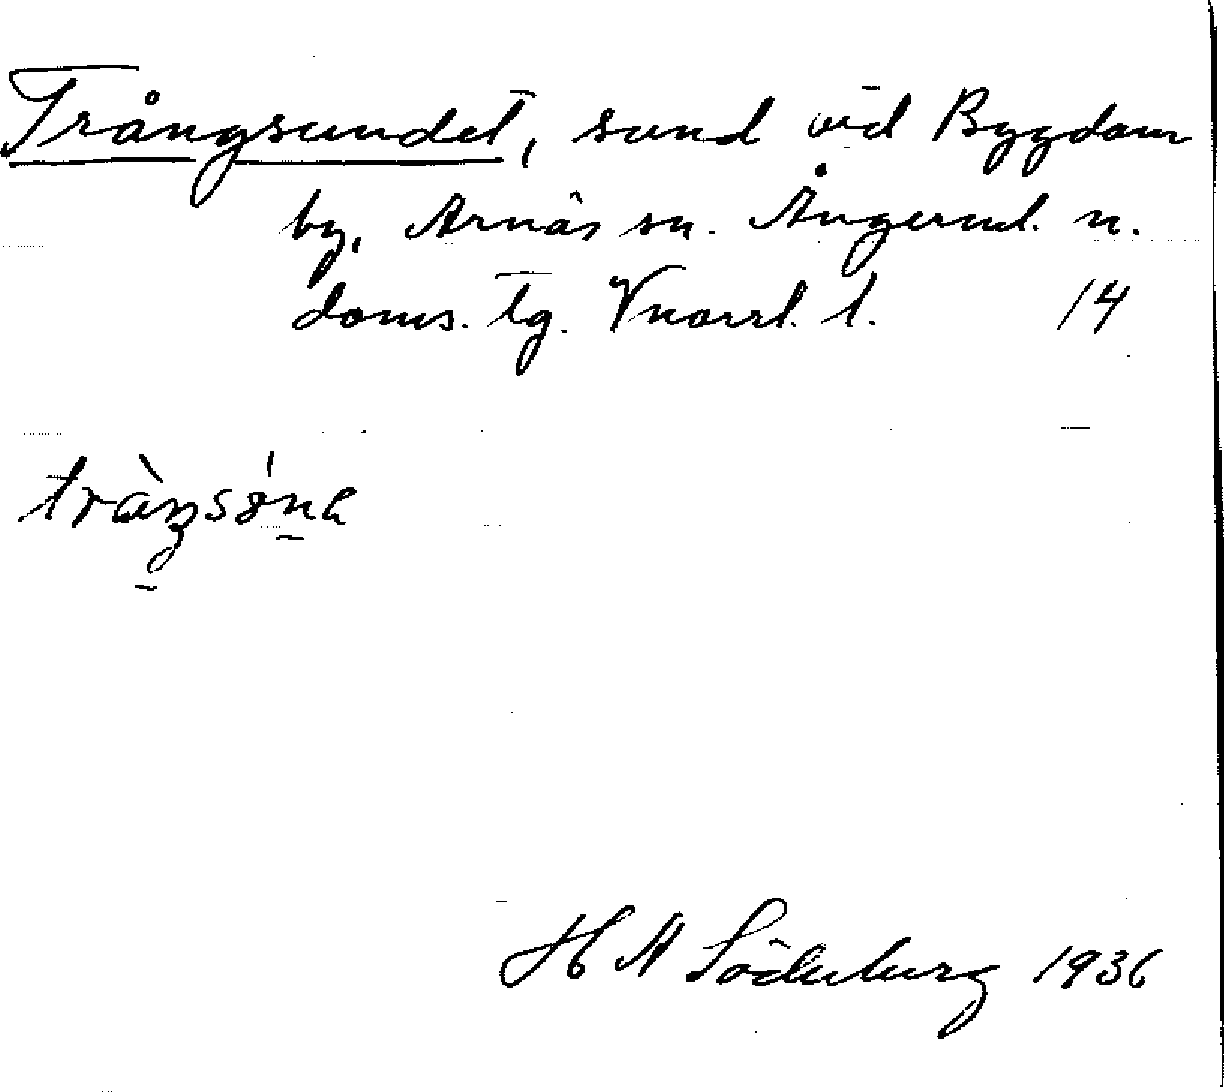 Trångsundet, sund vid Byggdom
by, Arnäs sn. Ångerml. n.
doms. tg. Vnorrl. l. 14
H N Söderberg 1936